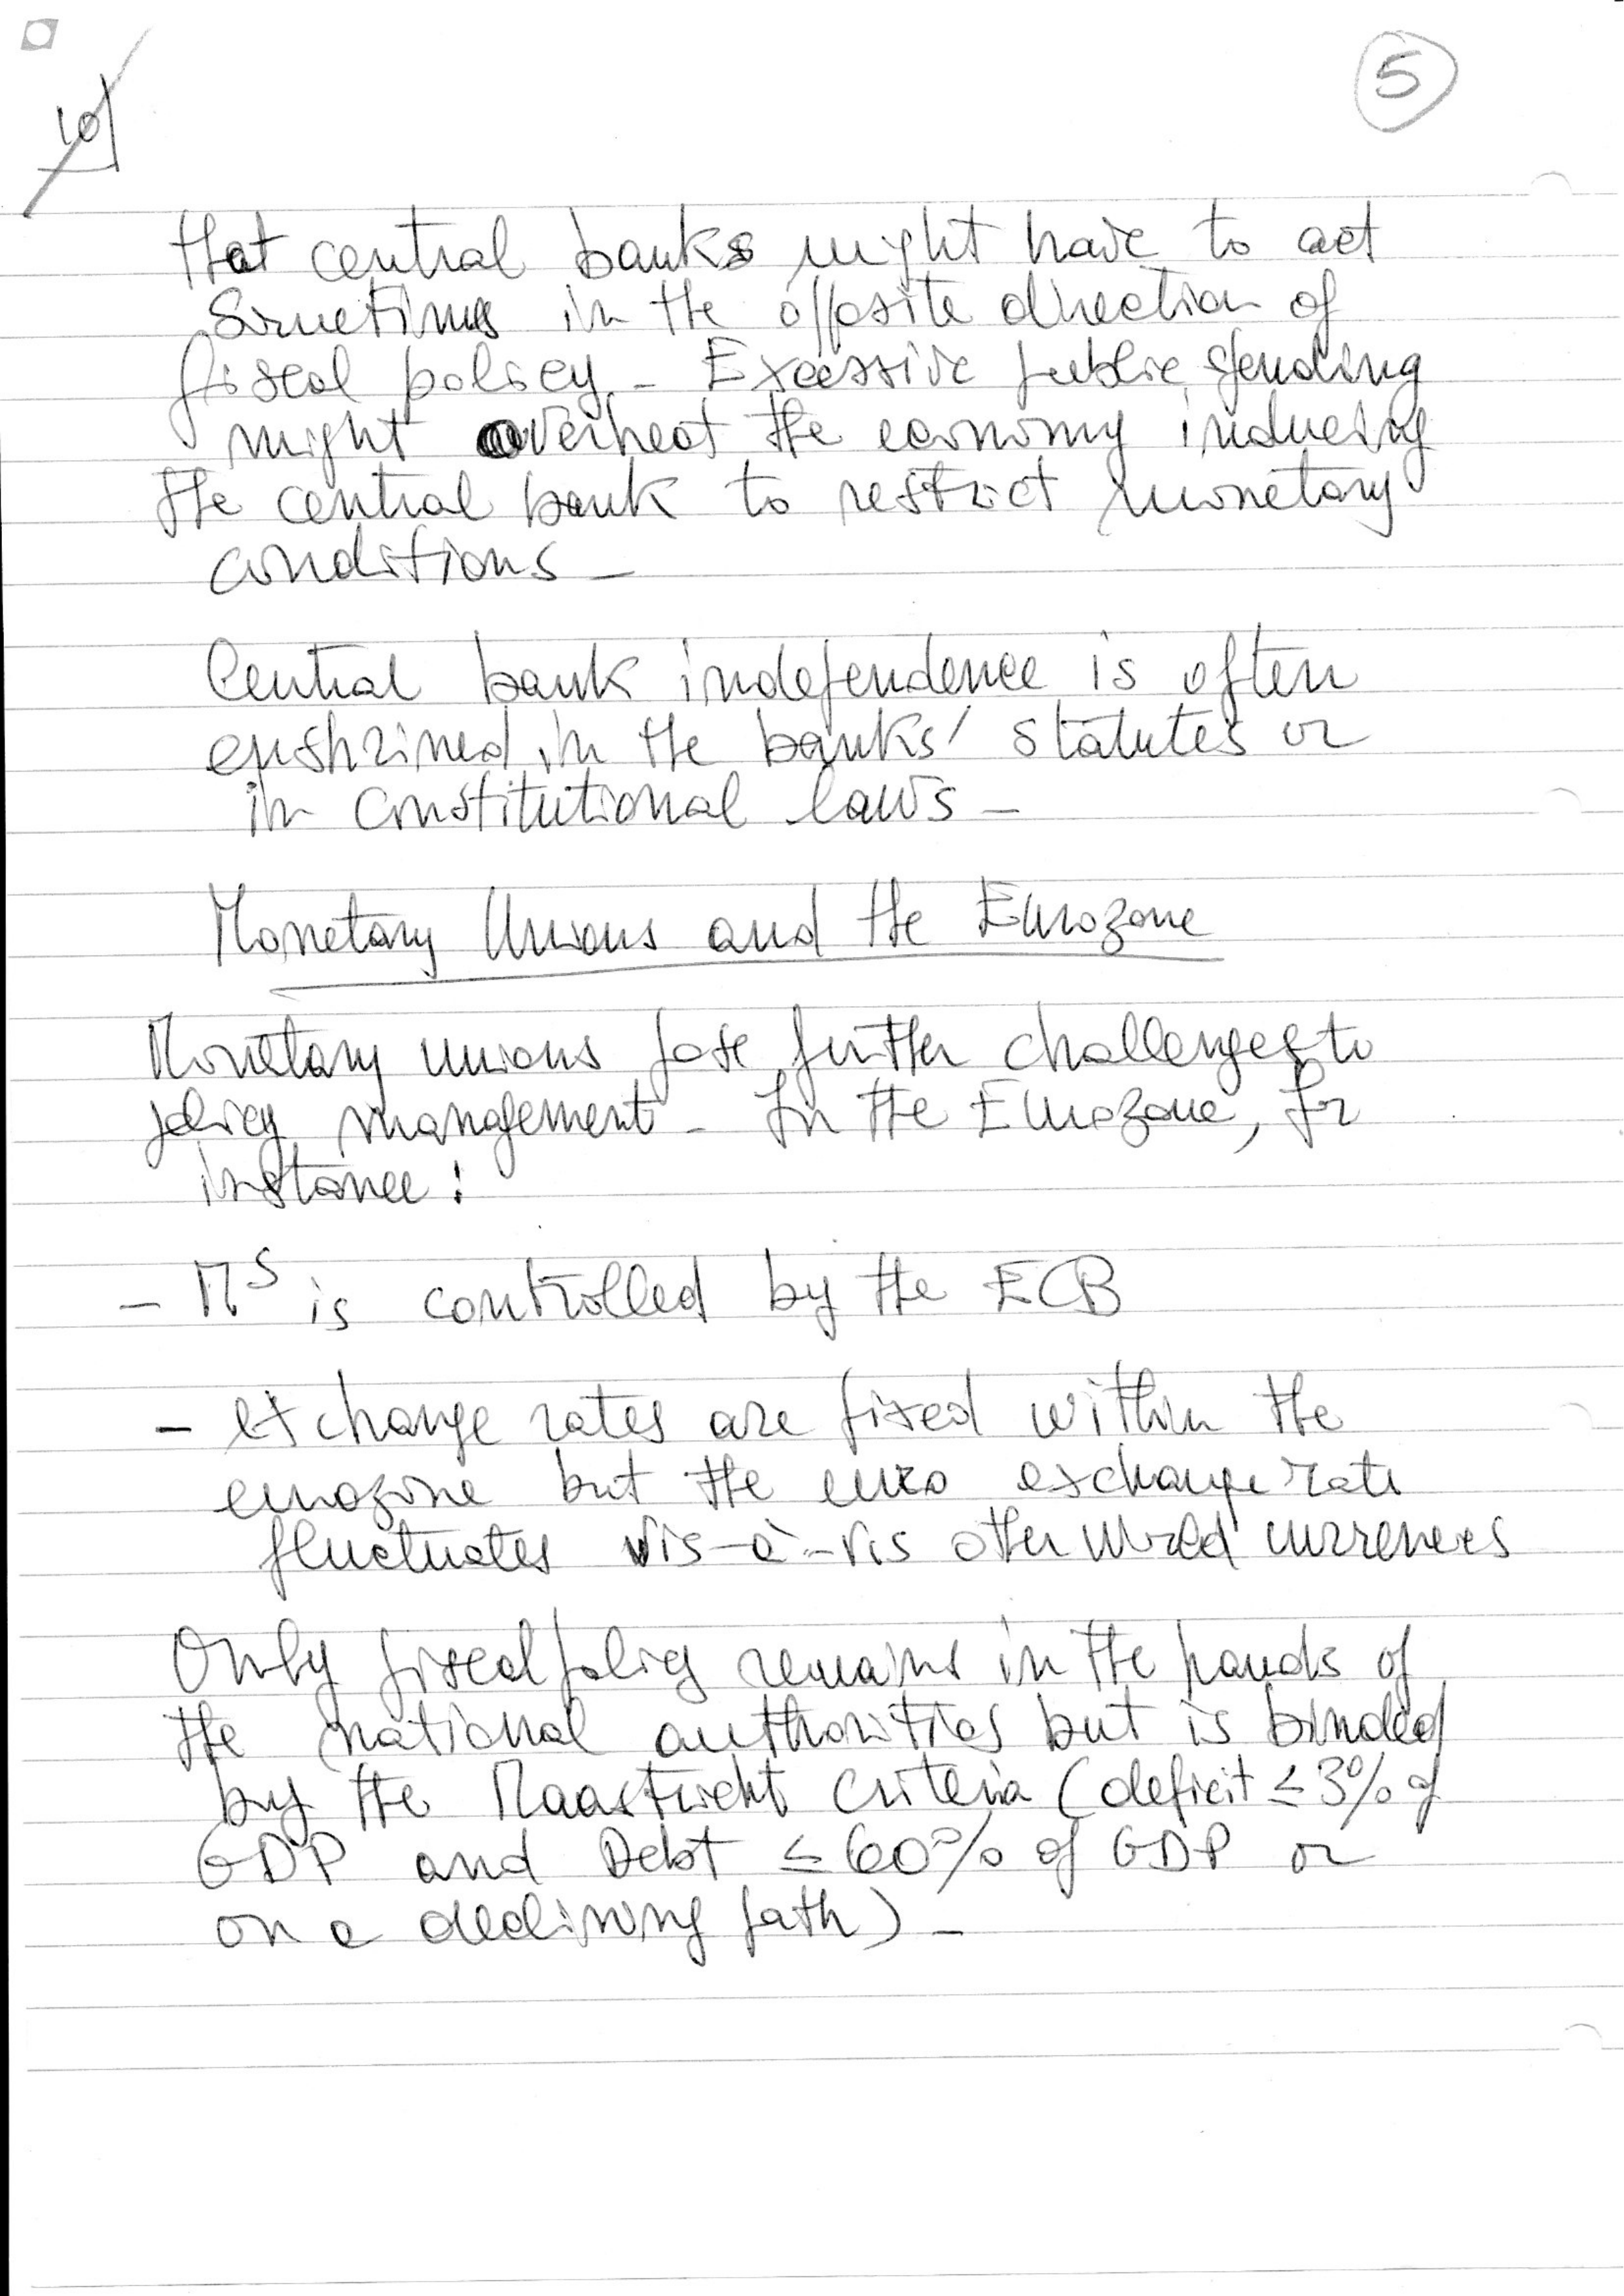 10
5
that central banks might have to act
sometimes in the opposite direction of
fiscal policy - Excessive public spending
might overheat the economy inducing
the central bank to restrict monetary
conditions -
Central bank independence is often
enshrined in the banks' statutes or
in constitutional laws -
Monetary Unions and the Eurozone
Monetary unions pose further challenges to
policy management - In the Eurozone, for
instance:
- Mˢ is controlled by the ECB
- exchange rates are fixed within the
eurozone but the euro exchange rate
fluctuates vis-à-vis other world currencies
Only fiscal policy remains in the hands of
the national authorities but is binded
by the Maastricht Criteria (deficit ≤ 3% of
GDP and Debt ≤ 60% of GDP or
on a declining path) -